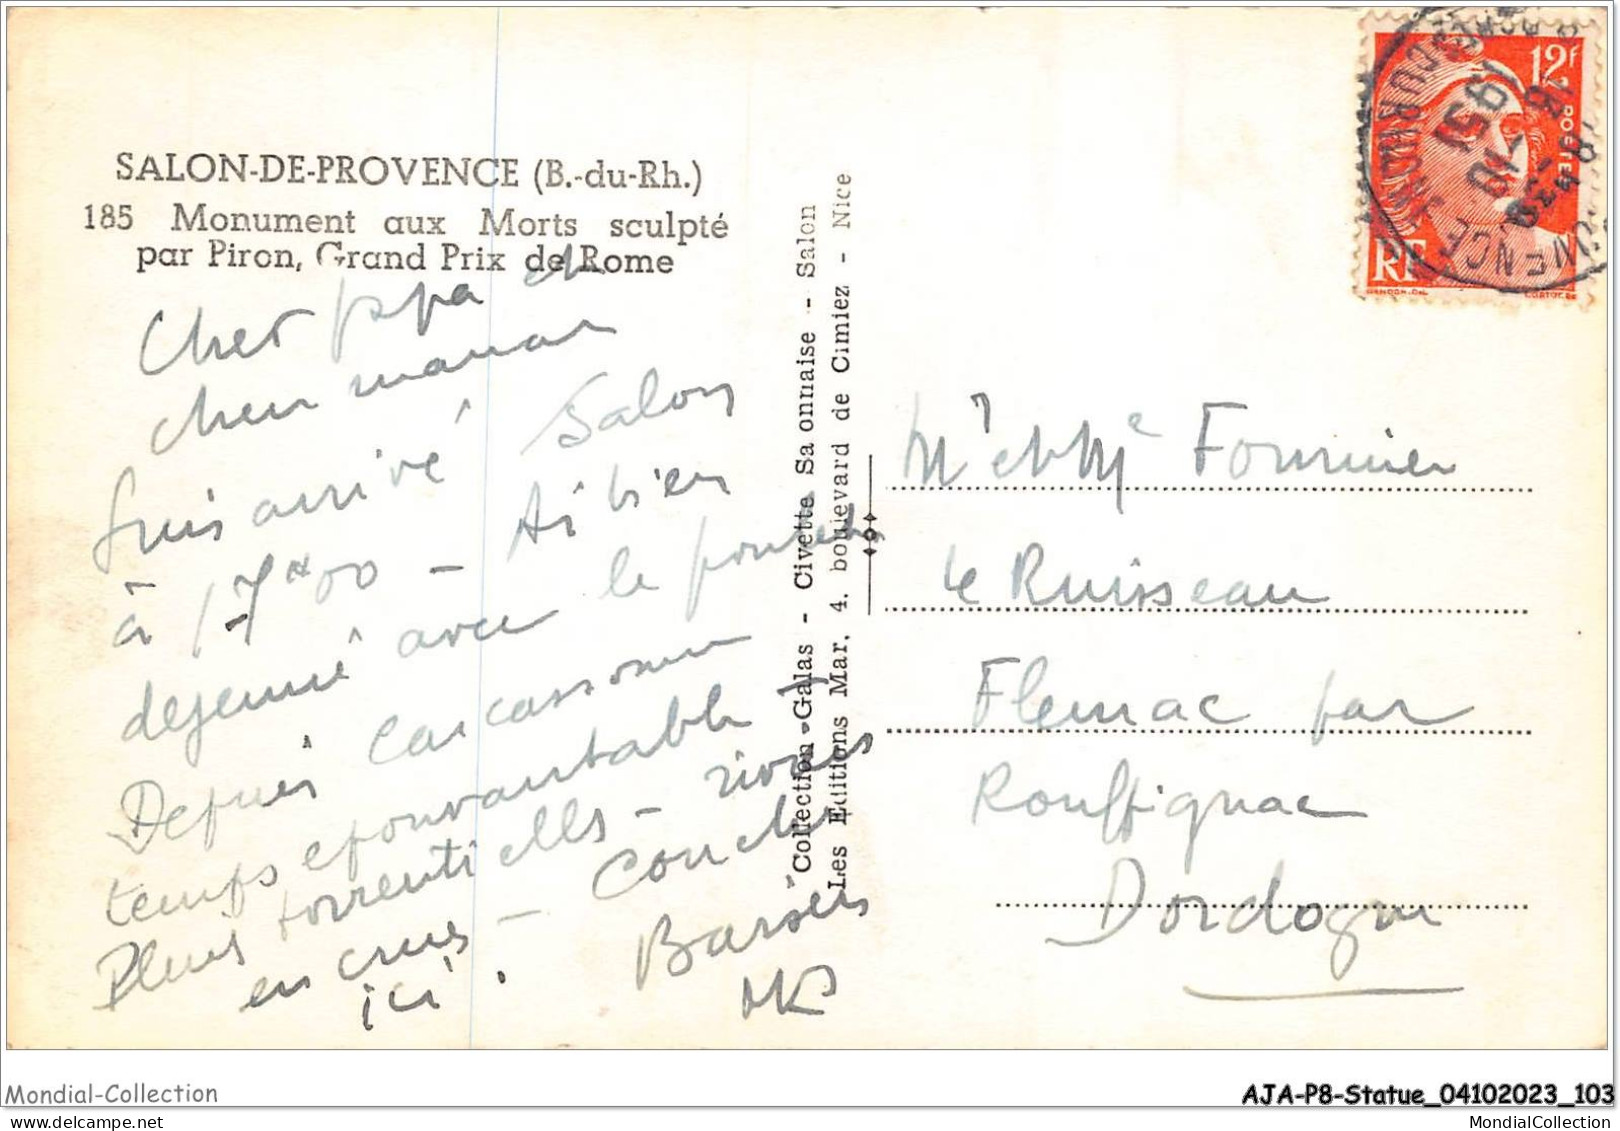 SALON-DE-PROVENCE (B.-du-Rh.)
185 Monument aux Morts sculpté
par Piron, Grand Prix de Rome
Cher papa et
chere maman
Suis arrivé Salon
à 17H00 - Ai bien
dejeuné avec le
Depuis Carcassonne
temps epouvantable
Pluies torrentielles - rivieres
en crues - Coucher
ici. Baisers
Collection Galas - Civette Sa onnaise - Salon
Les Editions Mar. 4. boulevard de Cimiez - Nice
12f
POSTES
RF
GANDON-DEL.
CORTOT.SC
1951
Mr et Mme Fournier
Le Ruisseau
Fleurac par
Rouffignac
Dordogne
Mondial-Collection
AJA-P8-Statue_04102023_103
www.delcampe.net
MondialCollection